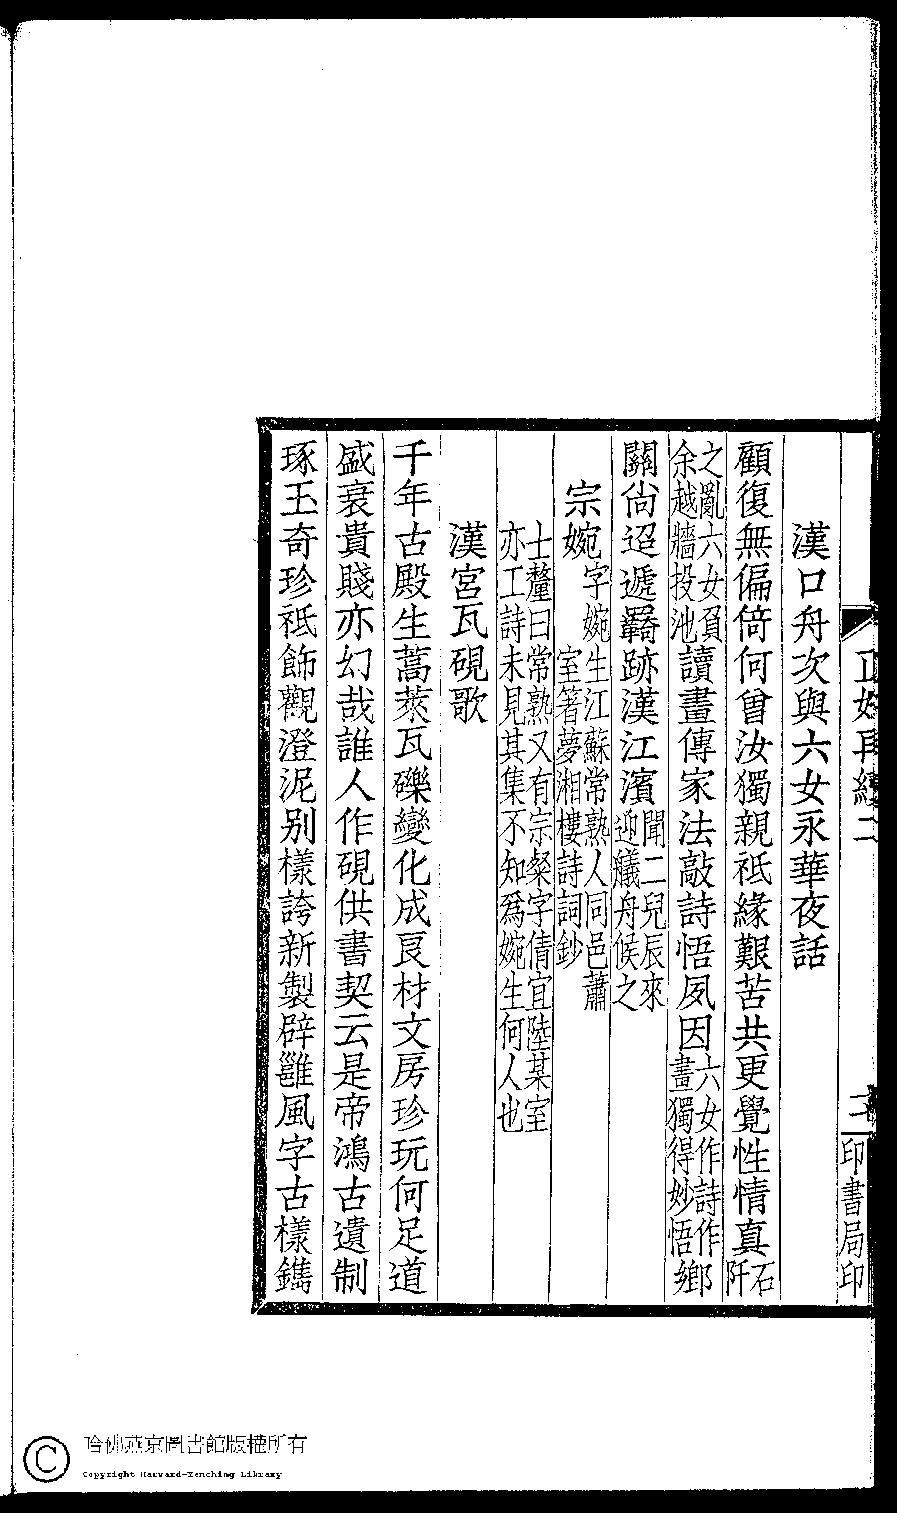 正始再續二
二
印書局印
漢口舟次與六女永華夜話
顧復無偏倚何曾汝獨親祗緣艱苦共更覺性情真石阡
之亂六女負余越牆投池讀畫傳家法敲詩悟夙因六女作詩作畫獨得妙悟鄉
關尙迢遞羈跡漢江濱聞二兒辰來迎艤舟候之
宗婉字婉生江蘇常熟人同邑蕭室著夢湘樓詩詞鈔
士釐曰常熟又有宗粲字倩宜陸某室
亦工詩未見其集不知爲婉生何人也
漢宮瓦硯歌
千年古殿生蒿萊瓦礫變化成良材文房珍玩何足道
盛衰貴賤亦幻哉誰人作硯供書契云是帝鴻古遺制
琢玉奇珍祗飾觀澄泥别樣誇新製辟雝風字古樣鐫
哈佛燕京圖書館版權所有
Copyright Harvard-Yenching Library